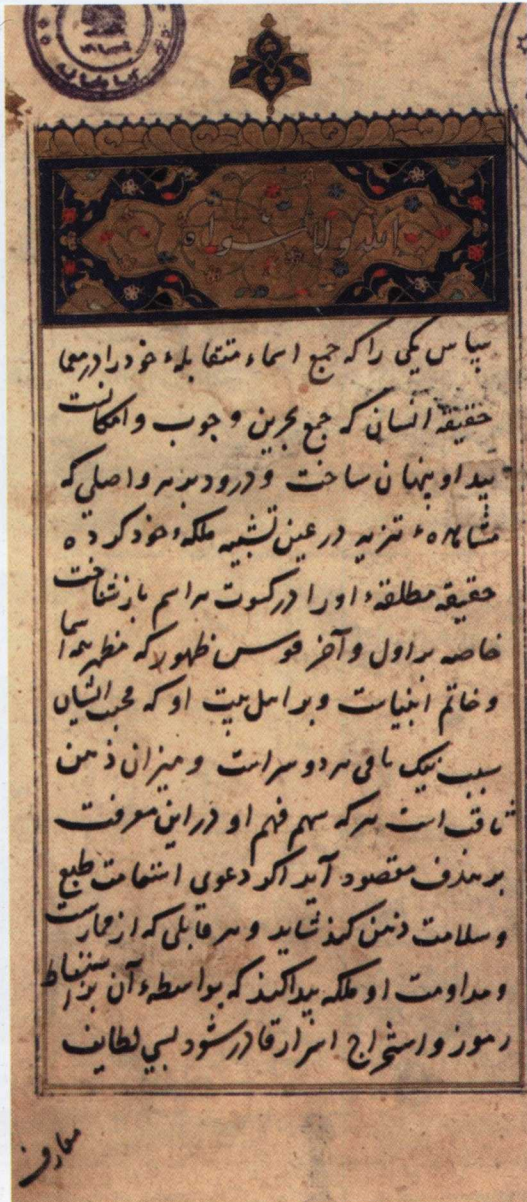 الله ولا سواه
سپاس یکی را که جمع اسماء متقابلهٔ خود را در معمای
حقیقة انسانی که جمع بحرین وجوب و امکانست
پیدا و پنهان ساخت و درود بر هر واصلی که
مشاهدهٔ تنزیه در عین تشبیه ملکهٔ خود کرده
حقیقة مطلقهٔ او را در کسوت هر اسم بازشناخت
خاصه بر اول و آخر قوس ظهور که مظهر همه اسما
و خاتم انبیاست و بر اهل بیت او که محبت ایشان
سبب نیک نامی هر دو سراست و میزان ذهن
ثاقب است هر که سهم فهم او در این معرفت
بر هدف مقصود آید اگر دعوی استقامت طبع
و سلامت ذهن کند شاید و هر قابلی که از ممارست
و مداومت او ملکه پیدا کند که بواسطهٔ آن بر استنباط
رموز و استخراج اسرار قادر شود بسی لطایف
معارف